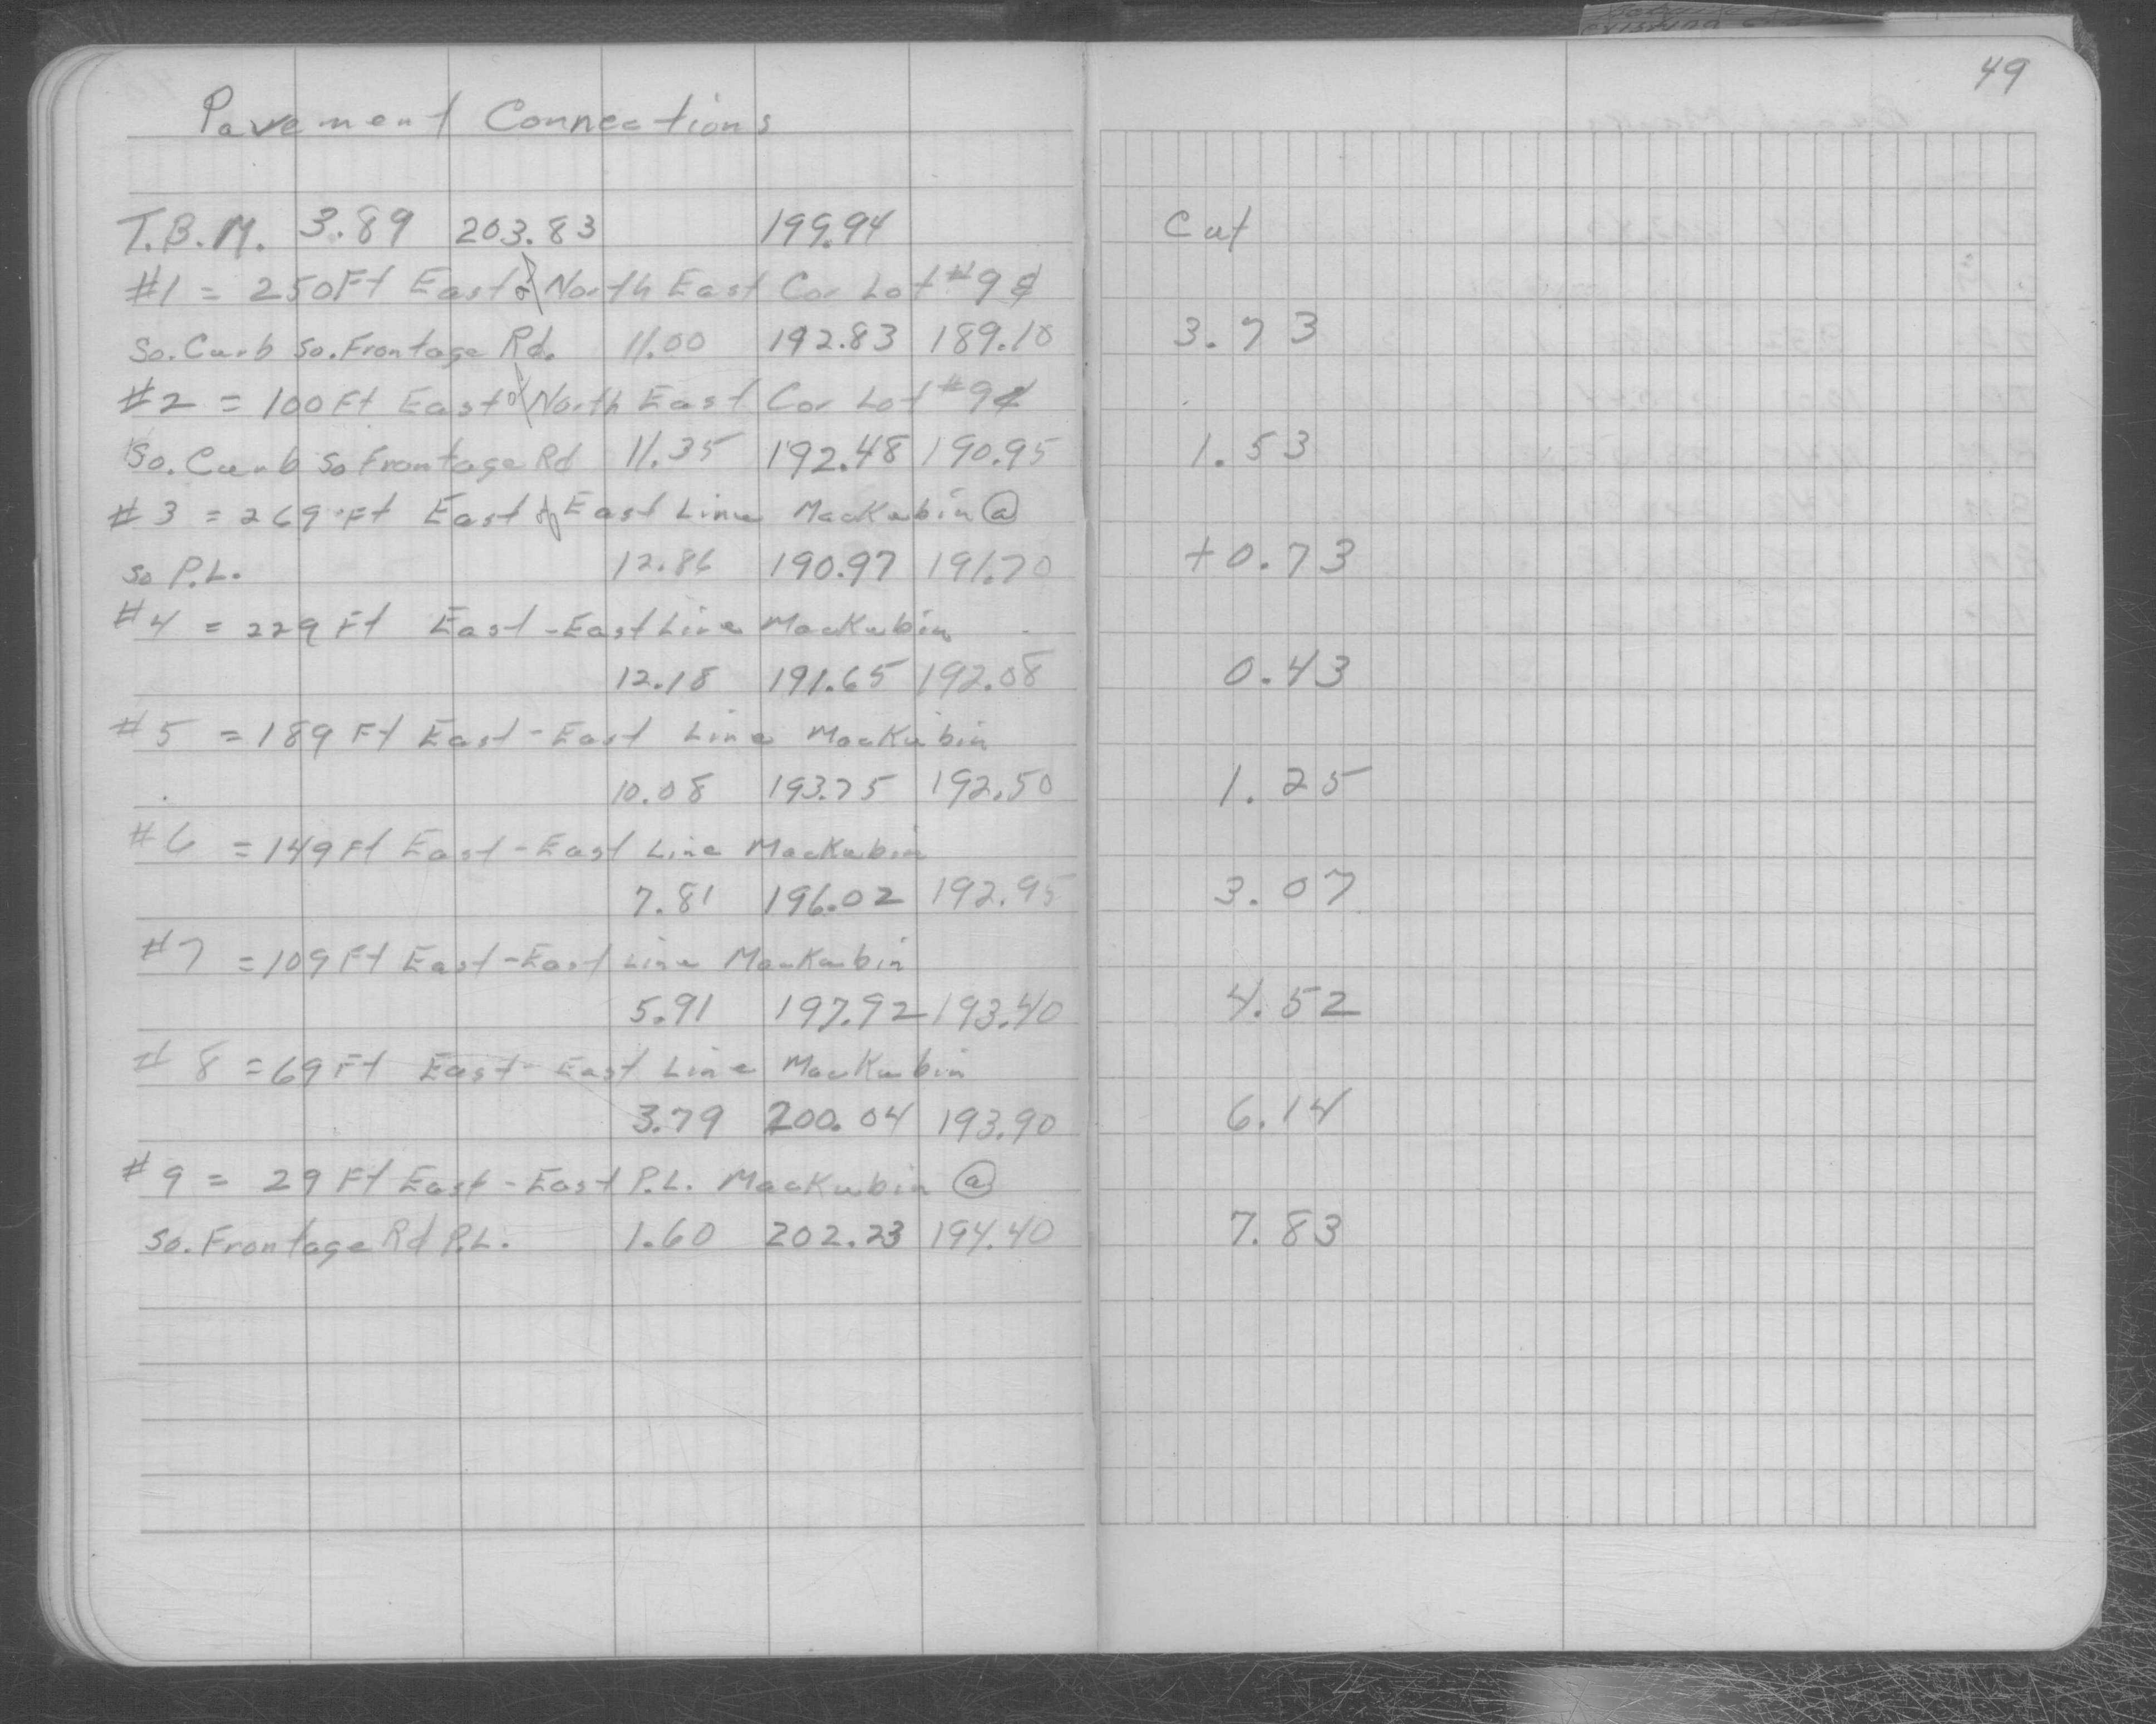 49
Pavement Connections
T.B.M. 3.89 203.83 199.94 Cut
#1 = 250Ft East of North East Cor Lot #9 &
So. Curb So. Frontage Rd. 11.00 192.83 189.10 3.73
#2 = 100 Ft East of North East Cor Lot #9 &
So. Curb So Frontage Rd 11.35 192.48 190.95 1.53
#3 = 269 Ft East of East Line Mackubin @
So P.L. 12.86 190.97 191.70 +0.73
#4 = 229 Ft East - East Line Mackubin
12.18 191.65 192.08 0.43
#5 = 189 Ft East - East Line Mackubin
10.08 193.75 192.50 1.25
#6 = 149 Ft East - East Line Mackubin
7.81 196.02 192.95 3.07
#7 = 109 Ft East - East Line Mackubin
5.91 197.92 193.40 4.52
#8 = 69 Ft East - East Line Mackubin
3.79 200.04 193.90 6.14
#9 = 29 Ft East - East P.L. Mackubin @
So. Frontage Rd P.L. 1.60 202.23 194.40 7.83